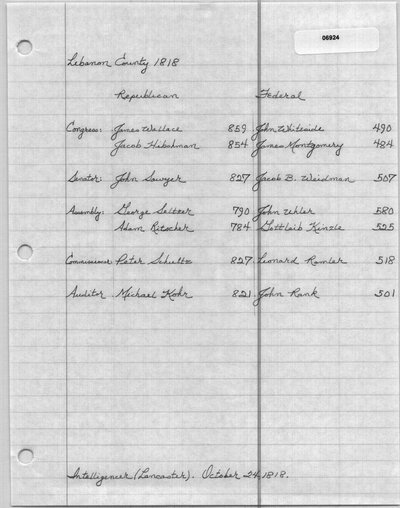 06924
Lebanon County 1818
Republican Federal
Congress: James Wallace 859 John Whiteside 490
Jacob Hibshman 854 James Montgomery 484
Senator: John Sawyer 827 Jacob B. Weidman 507
Assembly: George Seltzer 790 John Uhler 580
Adam Ritscher 784 Gottlaib Kinzle 525
Commissioner Peter Shultz 827 Leonard Ramler 518
Auditor Michael Kohr 821 John Rank 501
Intelligencer (Lancaster). October 24, 1818.